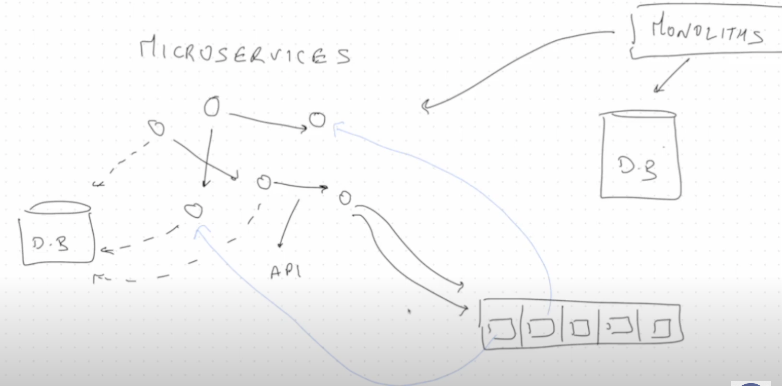 MICROSERVICES
MONOLITHS
D.B
D.B
API